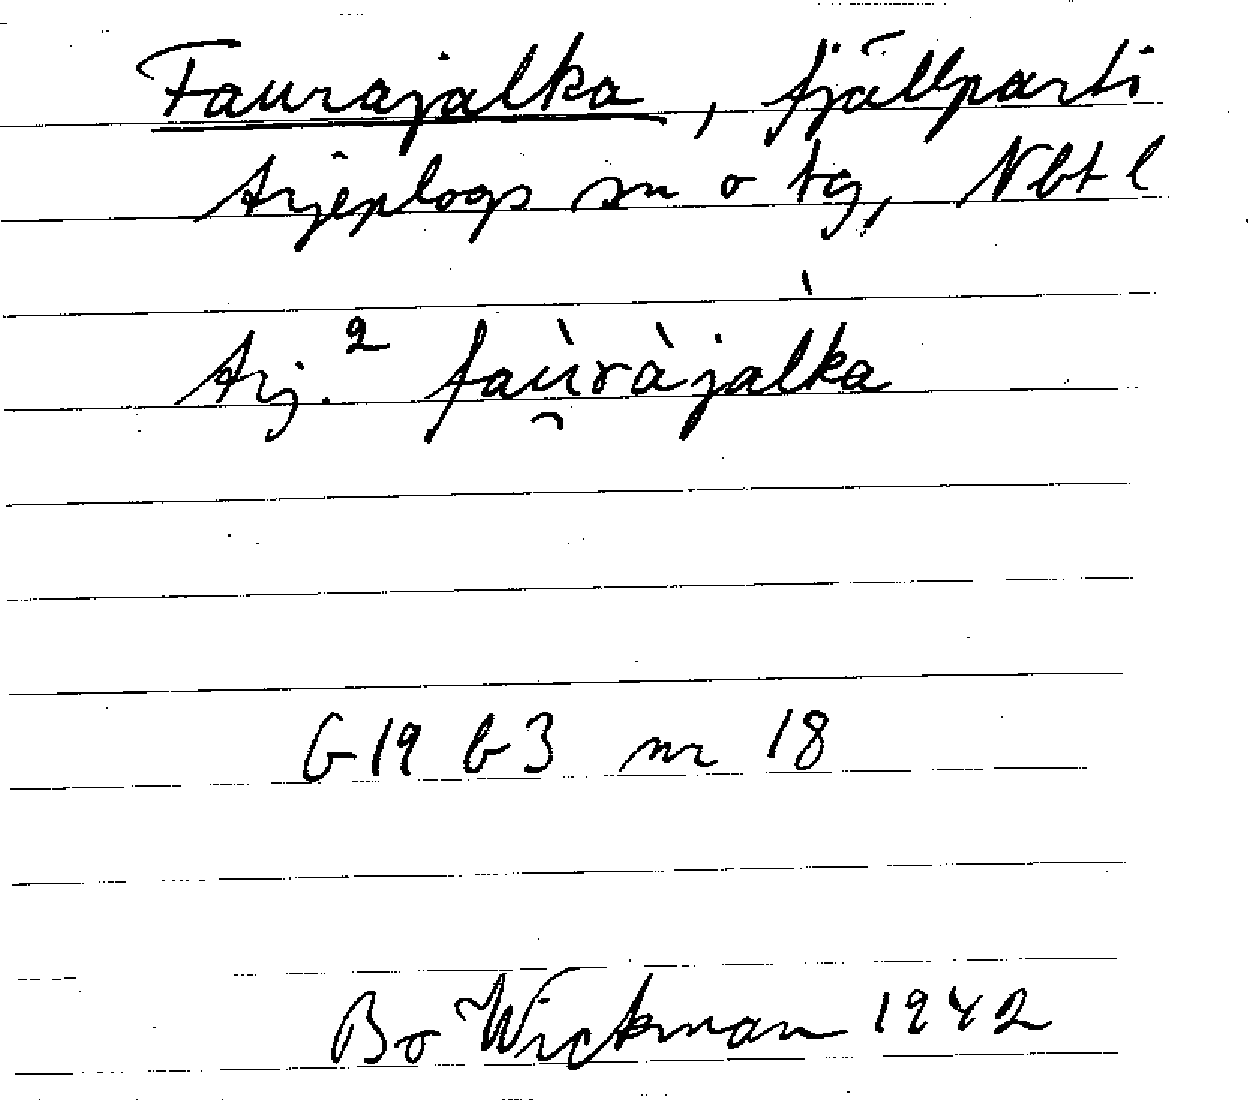 Faurajalka, fjällparti
Arjeplogs sn o tg, Nbt l
Arj.² faù̯ràjalk̀a
G19 b3 nr 18
Bo Wickman 1942